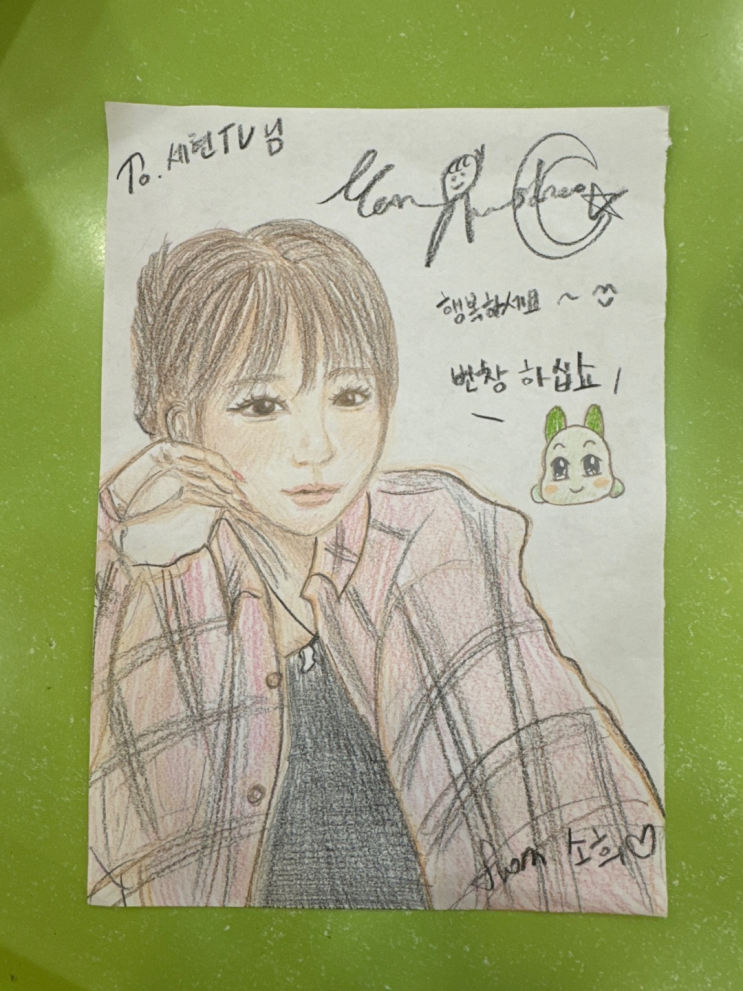 To. 세현TV님
행복하세요 ~
번창 하십쇼!
from 소희♡